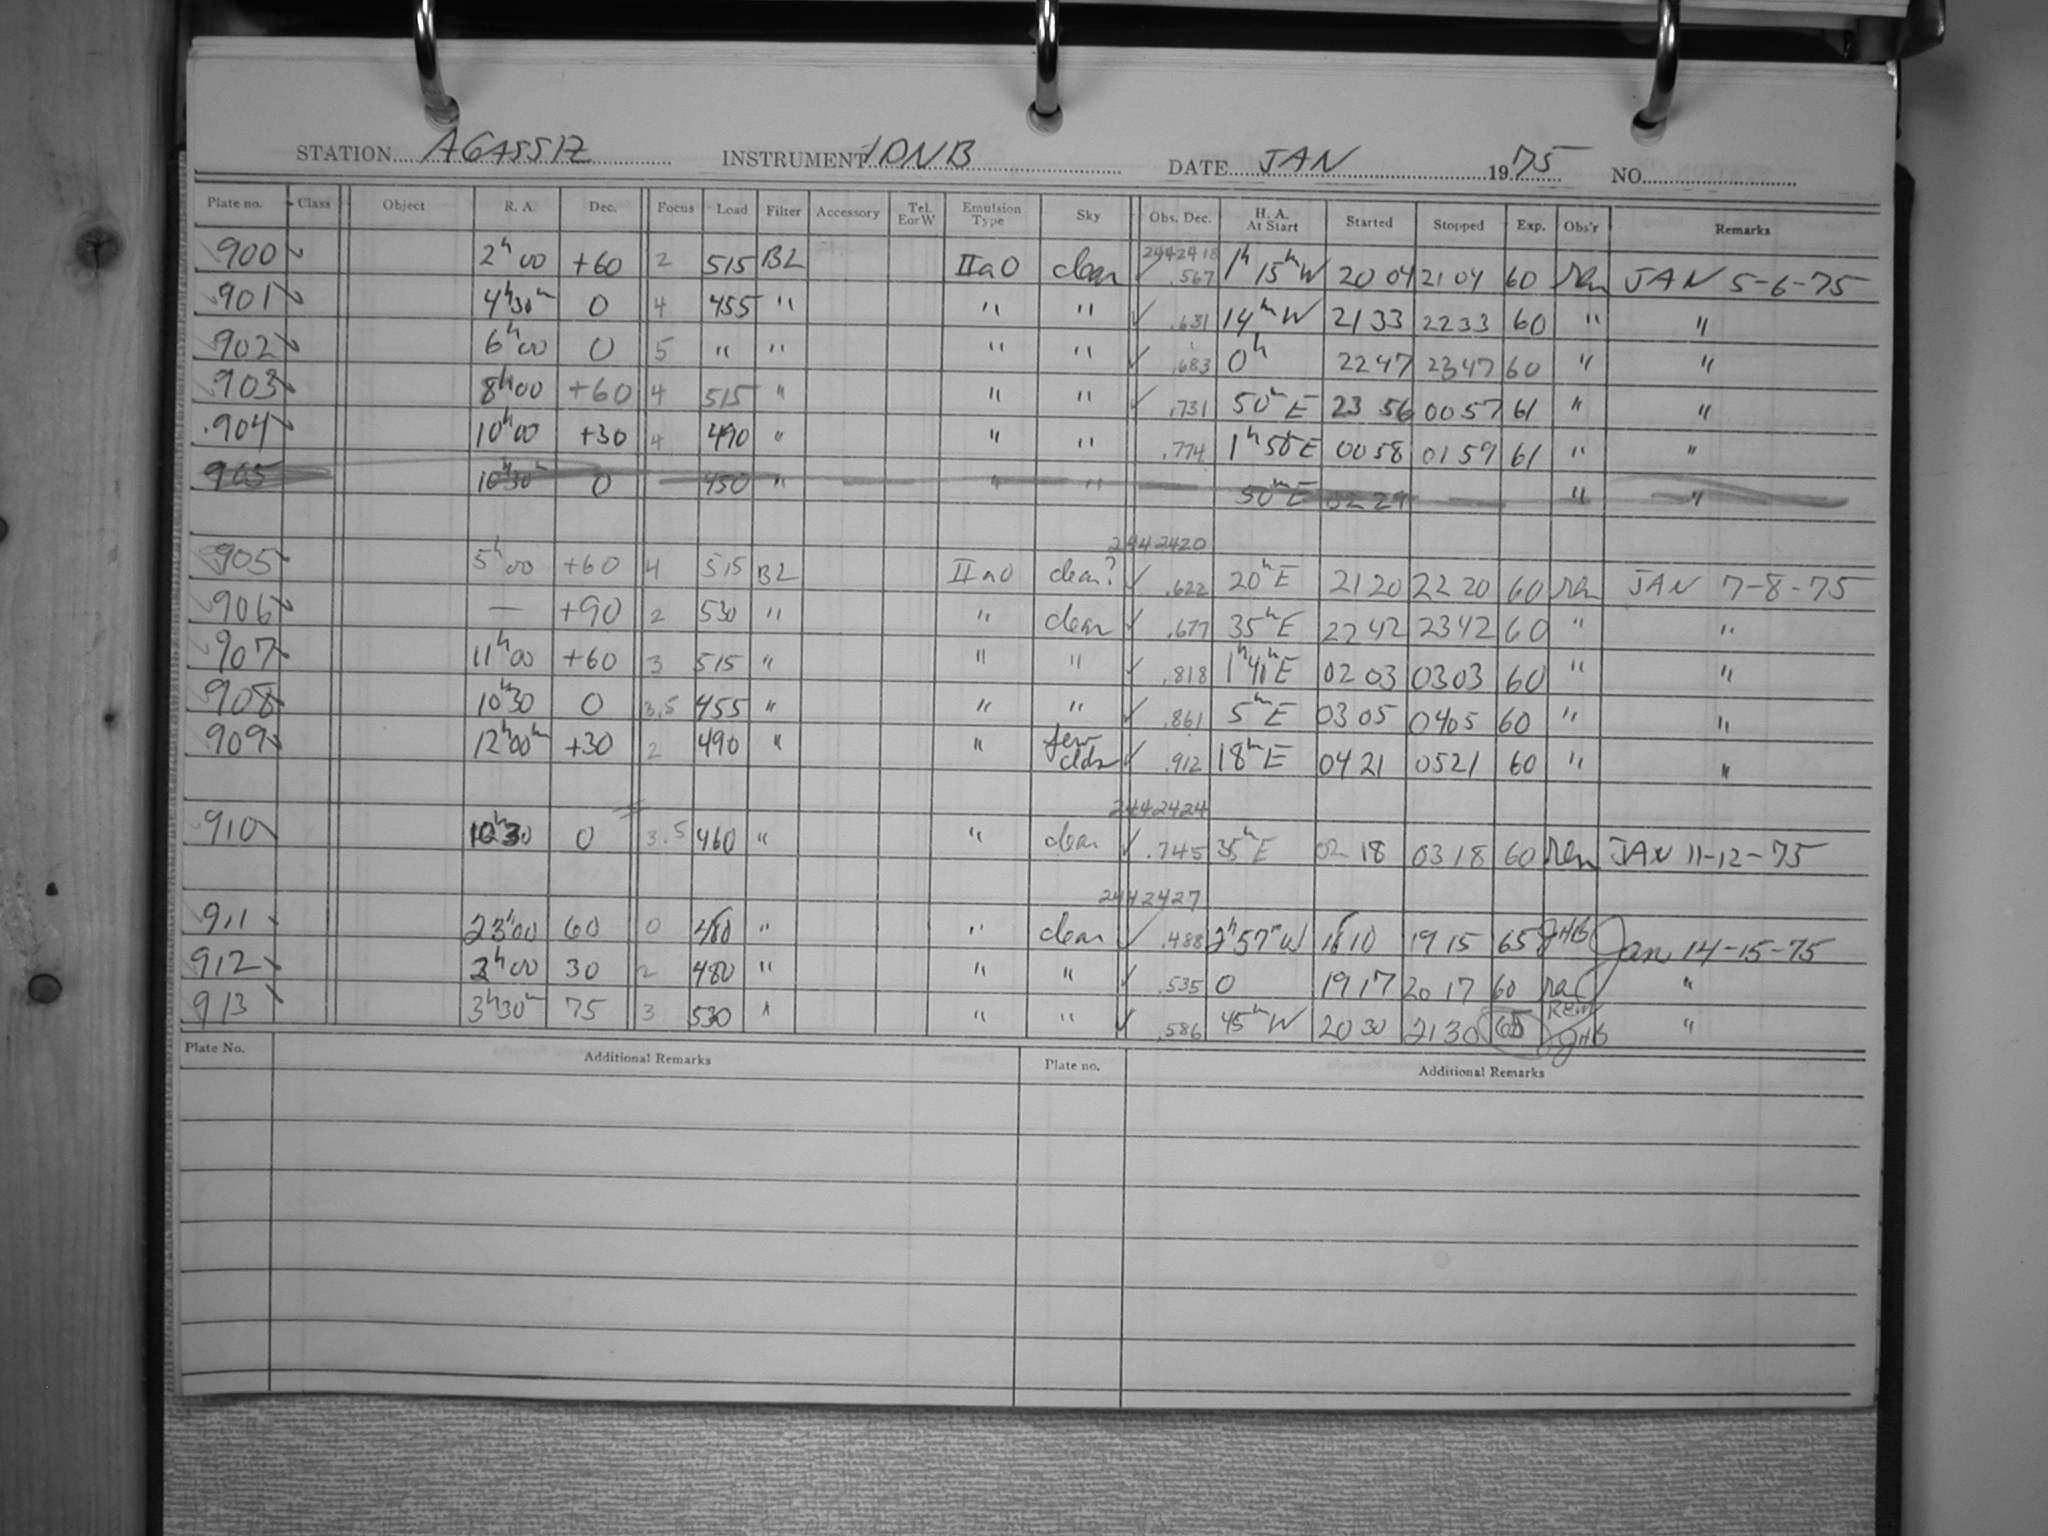 STATION AGASSIZ INSTRUMENT DNB DATE JAN 1975 NO.
Plate no. Class Object R. A. Dec. Focus Load Filter Accessory Tel. E or W Emulsion Type Sky Obs. Dec. H. A. At Start Started Stopped Exp. Obs'r Remarks
2442418
900 2h 00 +60 2 515 BL IIaO clear .567 1h 15m W 20 04 21 04 60 JAN 5-6-75
901 4h30m 0 4 455 " " " .631 14m W 21 33 22 33 60 " "
902 6h00 0 5 " " " " .683 0h 22 47 23 47 60 " "
903 8h00 +60 4 515 " " " .731 50m E 23 56 00 57 61 " "
904 10h00 +30 4 490 " " " .774 1h 58 E 00 58 01 59 61 " "
905 10h30m 0 450 " " " 50m E 02 29 " "
2442420
905 5h 00 +60 4 515 BL IIaO clear? .622 20m E 21 20 22 20 60 JAN 7-8-75
906 — +90 2 530 " " clear .677 35m E 22 42 23 42 60 " "
907 11h00 +60 3 515 " " " .818 1h 41m E 02 03 03 03 60 " "
908 10h30 0 3.5 455 " " " .861 5m E 03 05 04 05 60 " "
909 12h00m +30 2 490 " " few clds .912 18m E 04 21 05 21 60 " "
2442424
910 10h30 0 3.5 460 " " clear .745 35m E 02 18 03 18 60 JAN 11-12-75
2442427
911 23h00 60 0 480 " " clear .488 2h 57m W 18 10 19 15 65 JHB Jan 14-15-75
912 2h00 30 2 480 " " " .535 0 19 17 20 17 60 "
913 3h30m 75 3 530 " " " .586 45m W 20 30 21 30 60 JHB "
Plate No. Additional Remarks Plate no. Additional Remarks